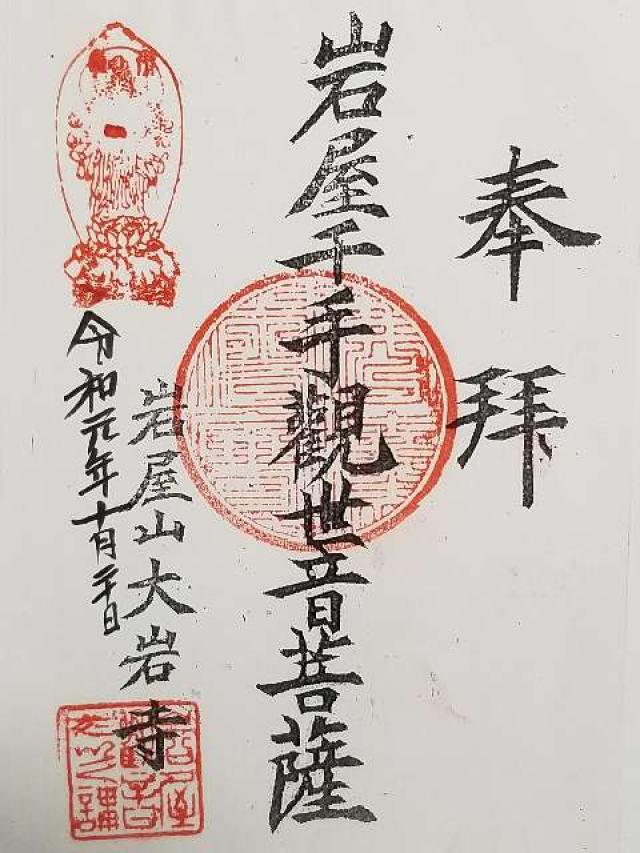 奉拜
岩屋千手觀世音菩薩
岩屋山大岩寺
令和元年十月二十日